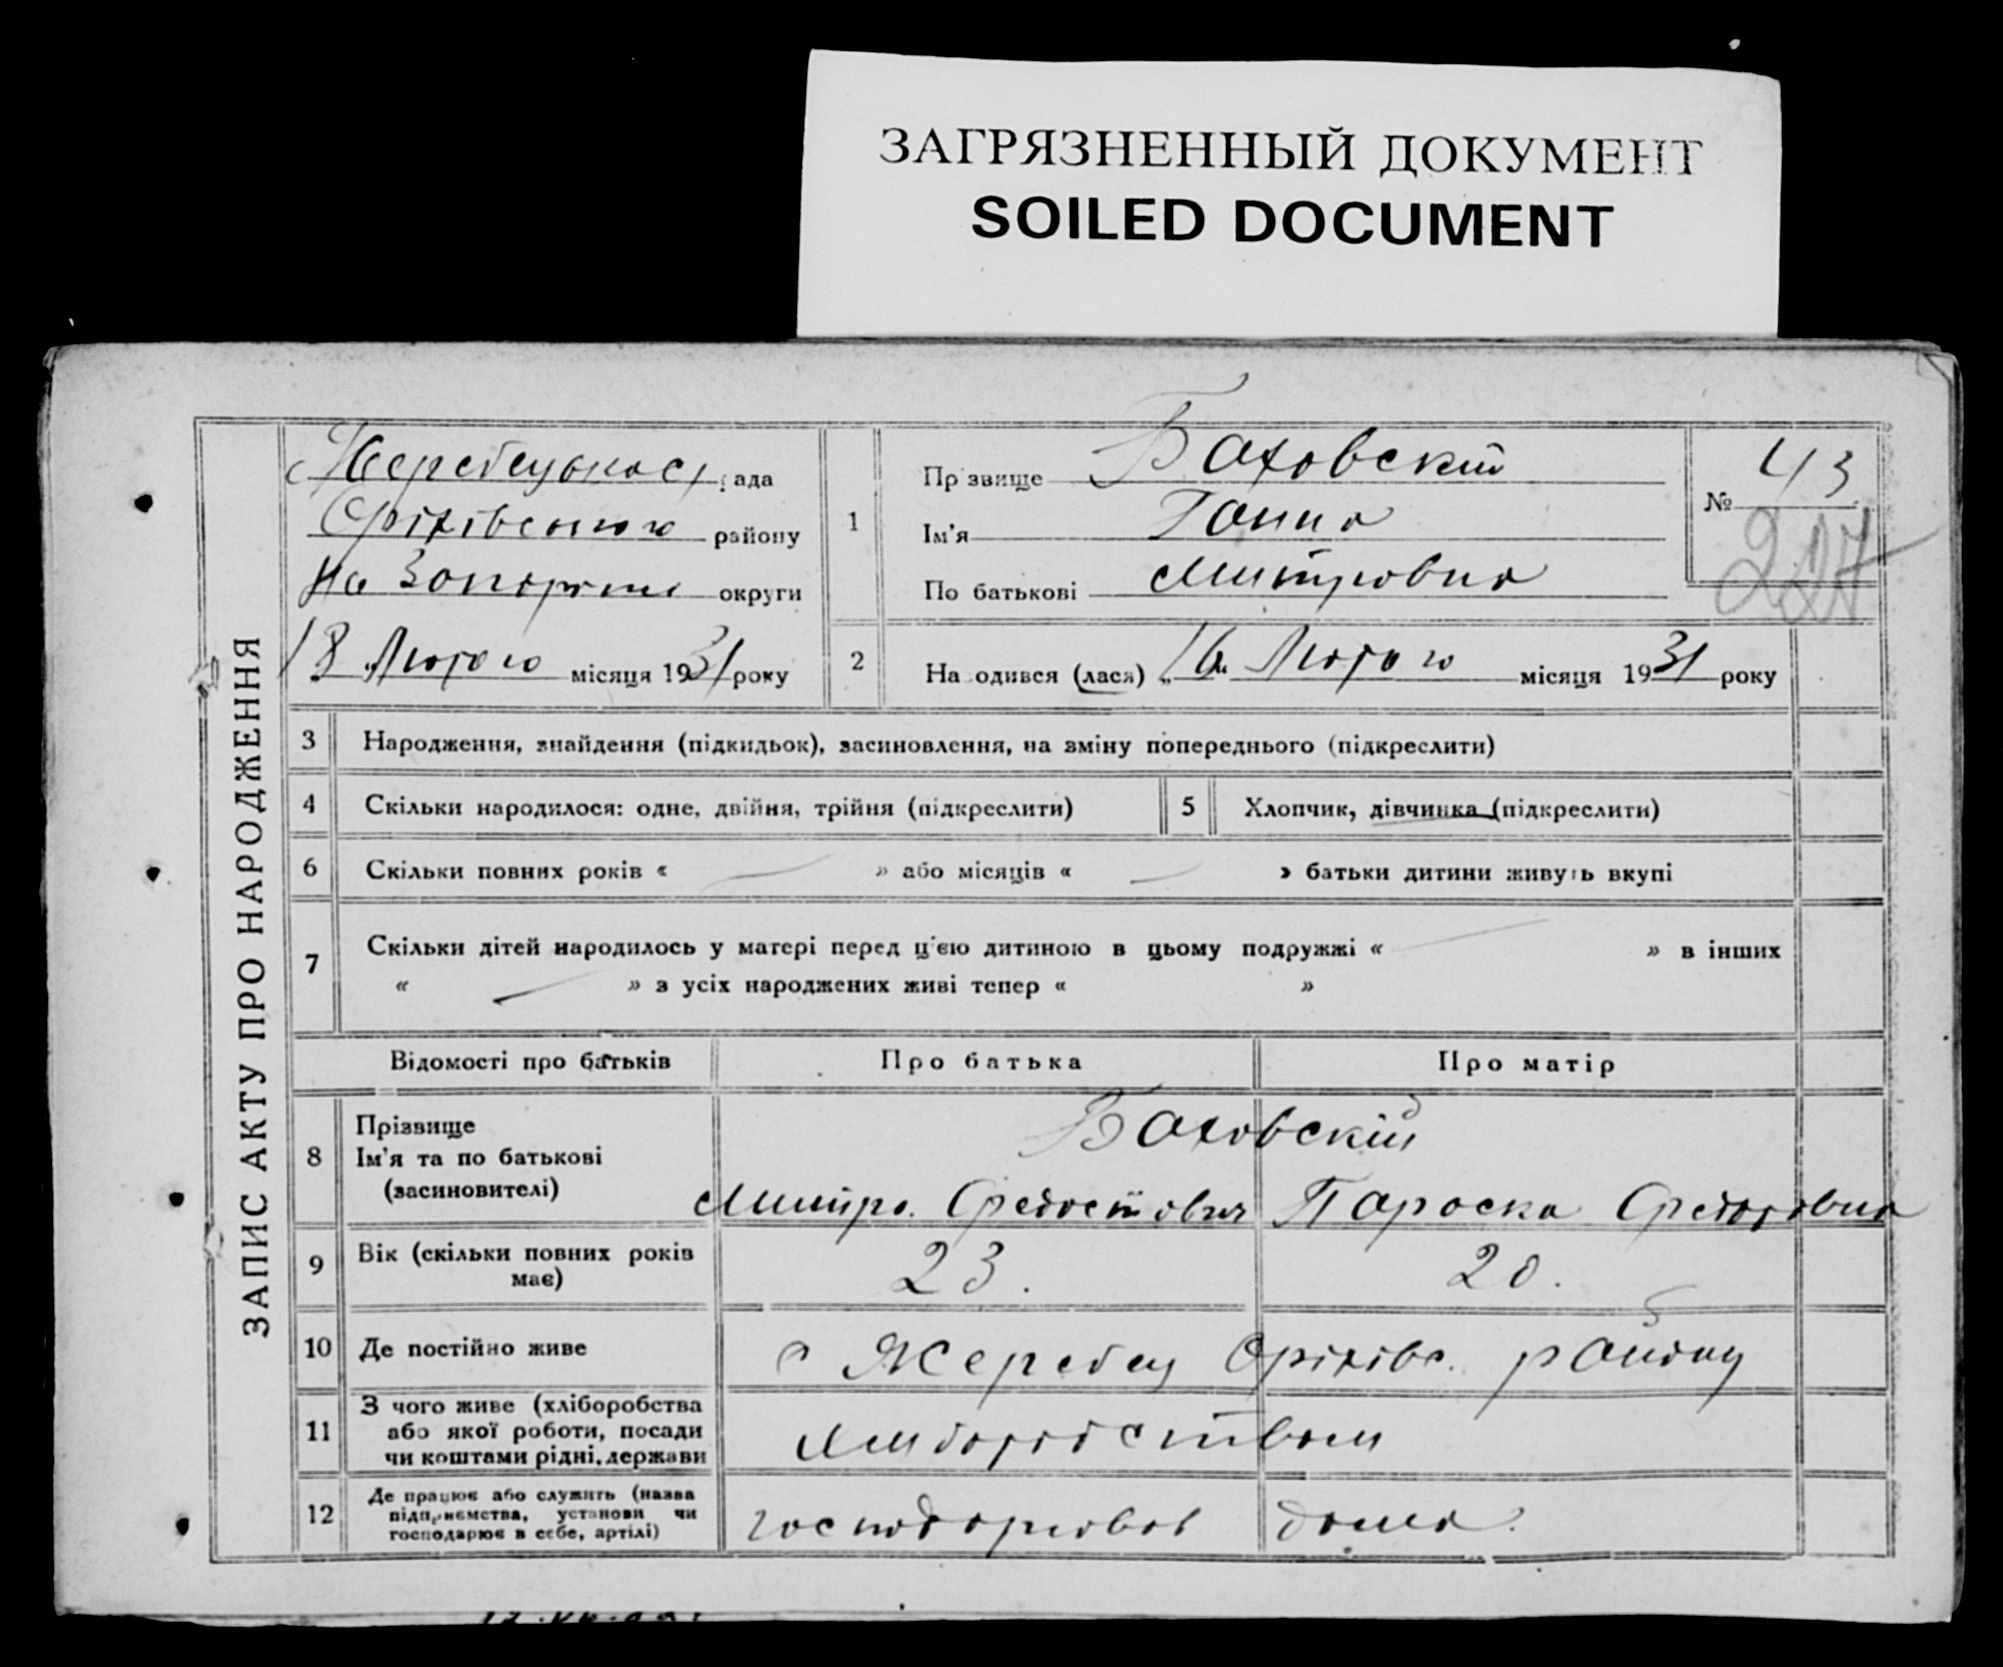 ЗАГРЯЗНЕННЫЙ ДОКУМЕНТ
SOILED DOCUMENT
ЗАПИС АКТУ ПРО НАРОДЖЕННЯ
Жеребецька с/рада
Оріхівського району
на Запоріжжі округи
18 Лютого місяця 1931 року
1
Прізвище Баховский
Ім'я Ганна
По батькові Митровна
№ 43
227
2 Народився (лася) „16" Лютого місяця 1931 року
3 Народження, знайдення (підкидьок), засиновлення, на зміну попереднього (підкреслити)
4 Скільки народилося: одне, двійня, трійня (підкреслити) 5 Хлопчик, дівчинка (підкреслити)
6 Скільки повних років « — » або місяців « — » батьки дитини живуть вкупі
7 Скільки дітей народилось у матері перед цією дитиною в цьому подружжі « — » в інших
« — » з усіх народжених живі тепер « »
Відомості про батьків Про батька Про матір
8 Прізвище
Ім'я та по батькові
(засиновителі)
Баховскій
Митро Федостович Параска Федоровна
9 Вік (скільки повних років
має)
23. 20.
10 Де постійно живе с Жеребец Оріхівс. району
11 З чого живе (хліборобства
або якої роботи, посади
чи коштами рідні, держави
хліборобством
12 Де працює або служить (назва
підприємства, установи чи
господарює в себе, артілі)
господарював дома.